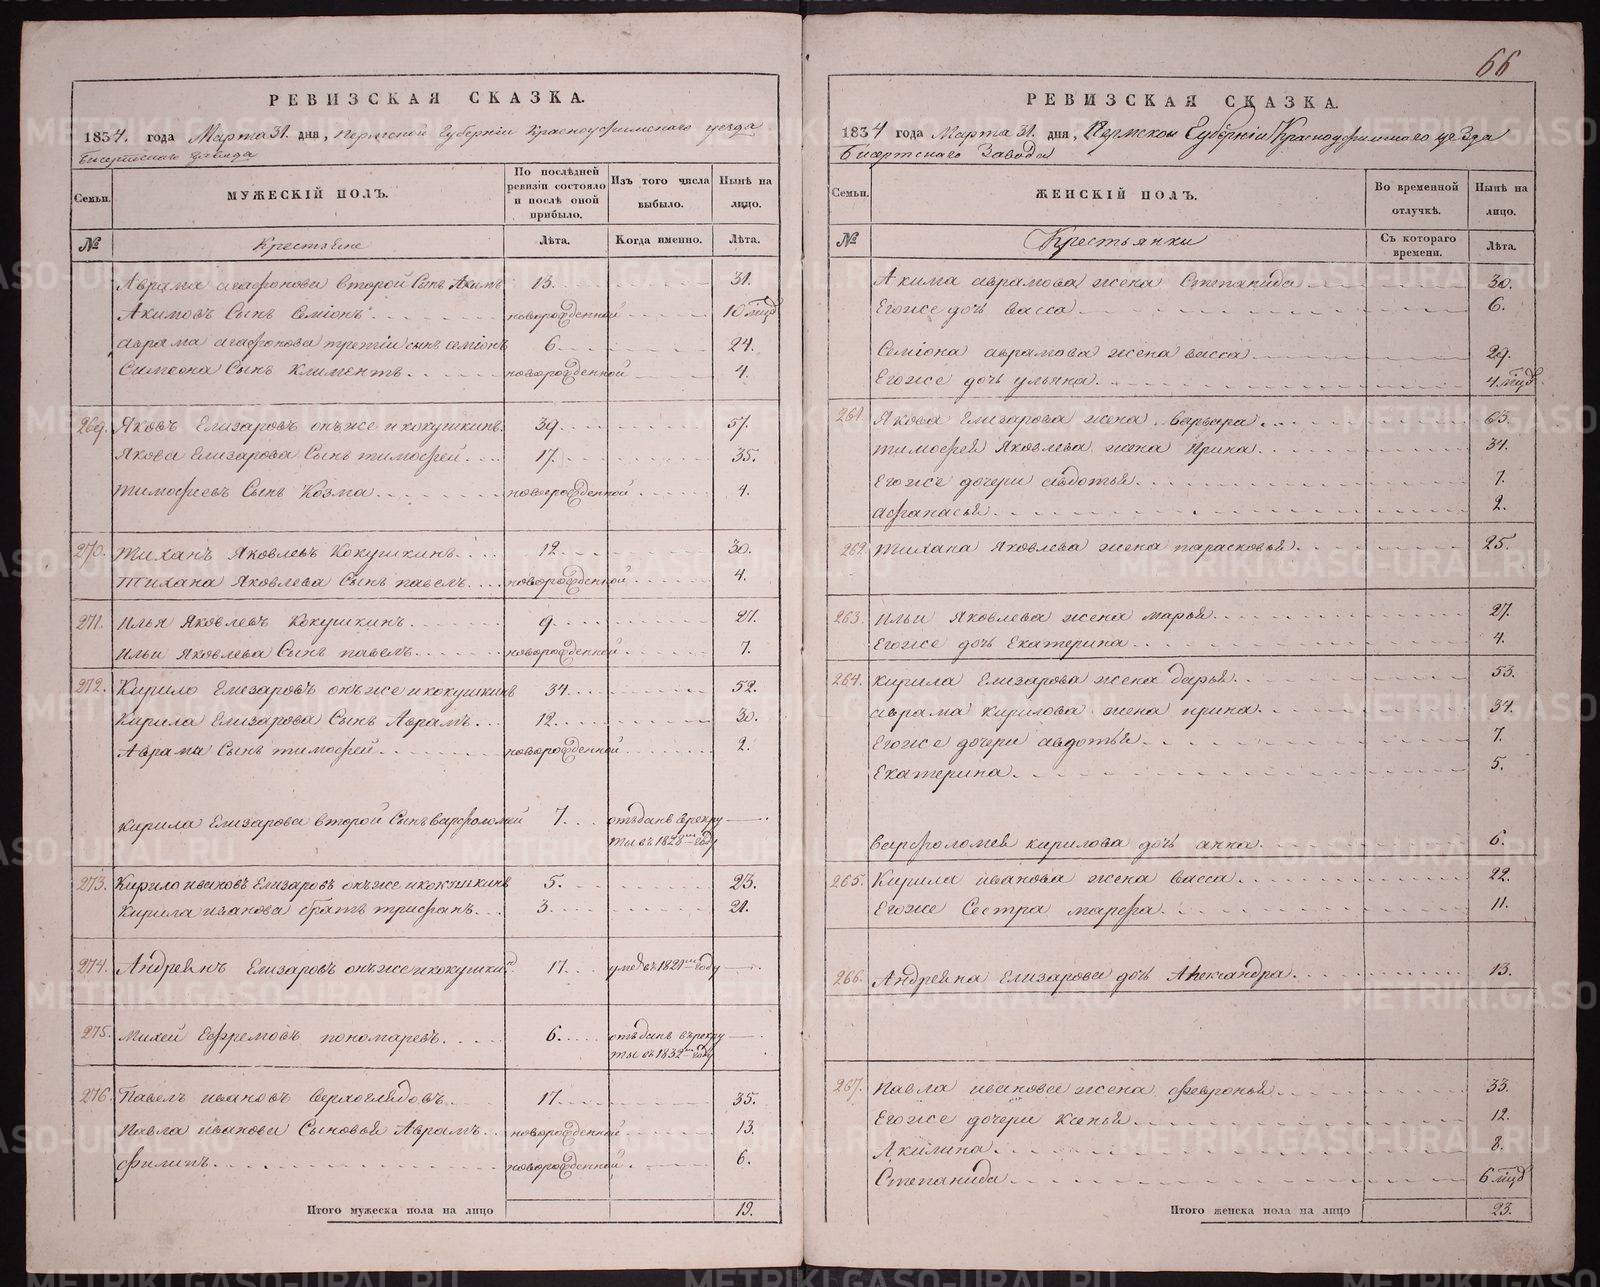 66
РЕВИЗСКАЯ СКАЗКА.
1834. года Марта 31. дня, Пермской Губерніи Красноуфимскаго уезда
Бисертскаго завода
Семьи. МУЖЕСКІЙ ПОЛЪ. По послѣдней ревизіи состояло и послѣ оной прибыло. Изъ того числа выбыло. Нынѣ на лицо.
№ Крестьяне Лѣта. Когда именно. Лѣта.
Аврама агафонова второй Сынъ Акимъ 13. 31.
Акимовъ Сынъ Семіонъ новорожденной 10 міцъ
аврама агафонова третіи сынъ семіонъ 6. 24.
Симеона Сынъ Климентъ новорожденной 4.
269. Яковъ Елизаровъ онъже и кокушкинъ 39. 57.
Якова Елизарова Сынъ тимофей 17. 35.
тимофеевъ Сынъ Козма новорожденной 4.
270. Тиханъ Яковлевъ Кокушкинъ 12. 30.
Тихана Яковлева Сынъ павелъ новорожденной 4.
271. Илья Яковлевъ Кокушкинъ 9. 27.
Ильи Яковлева Сынъ павелъ новорожденной 7.
272. Кирило Елизаровъ онъже и кокушкинъ 34. 52.
Кирила Елизарова Сынъ Аврамъ 12. 30.
Аврама Сынъ тимофей новорожденной 2.
Кирила Елизарова второй Сынъ варфоломей 7. отъданъ в рекру
ты въ 1828м году
273. Кирило ивановъ Елизаровъ онъже и кокушкинъ 5. 23.
Кирила иванова братъ трифанъ 3. 21.
274. Андреянъ Елизаровъ онъже и кокушкин 17. умеръ 1821м году
275. Михей Ефремовъ пономаревъ 6. отъданъ в рекру
ты въ 1832м году
276. Павелъ ивановъ Верхоглядовъ 17. 35.
Павла иванова Сыновья Аврамъ новорожденной 13.
филипъ новорожденной 6.
Итого мужеска пола на лицо 19.
РЕВИЗСКАЯ СКАЗКА.
1834 года Марта 31. дня, Пермской Губерніи Красноуфимскаго уезда
Бисертскаго Завода
Семьи. ЖЕНСКІЙ ПОЛЪ. Во временной отлучкѣ. Нынѣ на лицо.
№ Крестьянки Съ котораго времени. Лѣта.
Акима аврамова жена Степанида 30.
Егоже дочь васса 6.
Семіона аврамова жена васса 29.
Егоже дочь ульяна 4 міцъ
261. Якова Елизарова жена Варвара 63.
тимофея Яковлева жена Ирина 31.
Егоже дочери авдотья 7.
афанасья 2.
262. Тихана Яковлева жена парасковья 25.
263. Ильи Яковлева жена марья 27.
Егоже дочь Екатерина 4.
264. Кирила Елизарова жена дарья 53.
аврама Кирилова жена ирина 34.
Егоже дочери авдотья 7.
Екатерина 5.
Варфоломея кирилова дочь анна 6.
265. Кирила иванова жена васса 22.
Егоже Сестра марфа 11.
266. Андреяна Елизарова дочь Александра 13.
267. Павла иванова жена февронья 33.
Егоже дочери Ксенья 12.
Акилина 8.
Степанида 6 міцъ
Итого женска пола на лицо 23.